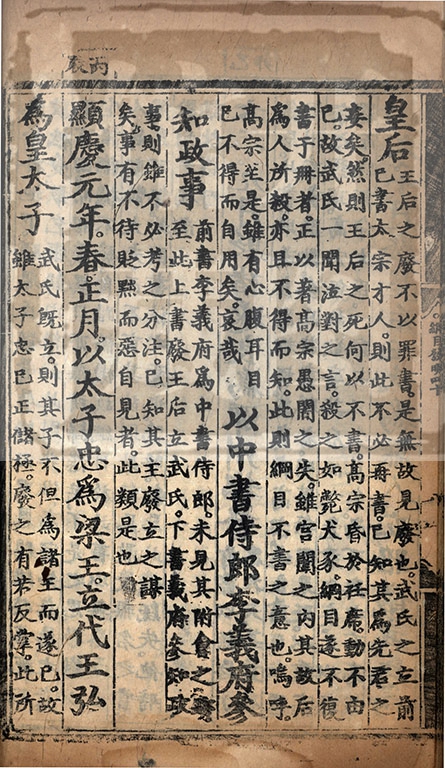 皇后
王后之廢不以罪書。是無故見廢也。武氏之立前
已書太宗才人。則此不必再書。已知其爲先君之
妾矣。然則王后之死何以不書。高宗昏於袵席。動不由
已。故武氏一聞泣對之言。殺之如斃犬豕。綱目遂不復
書于冊者。正以著高宗愚闇之失。雖宮闈之內其故后
爲人所殺。亦且不得而知。此則綱目不書之意也。嗚呼。
高宗至是。雖有心腹耳目
已不得而自用矣。哀哉
以中書侍郎李義府參
知政事
前書李義府爲中書侍郎。未見其附會之
至此上書廢王后立武氏。下書義府參知政
事。則雖不必考之分注。已知其主廢立之謀
矣。事有不待貶黜而惡自見者。此類是也
丙辰
顯慶元年。春。正月。以太子忠爲梁王。立代王弘
爲皇太子
武氏旣立。則其子不但爲諸王而遂已。故
雖太子忠已正儲極。廢之有若反掌。此所